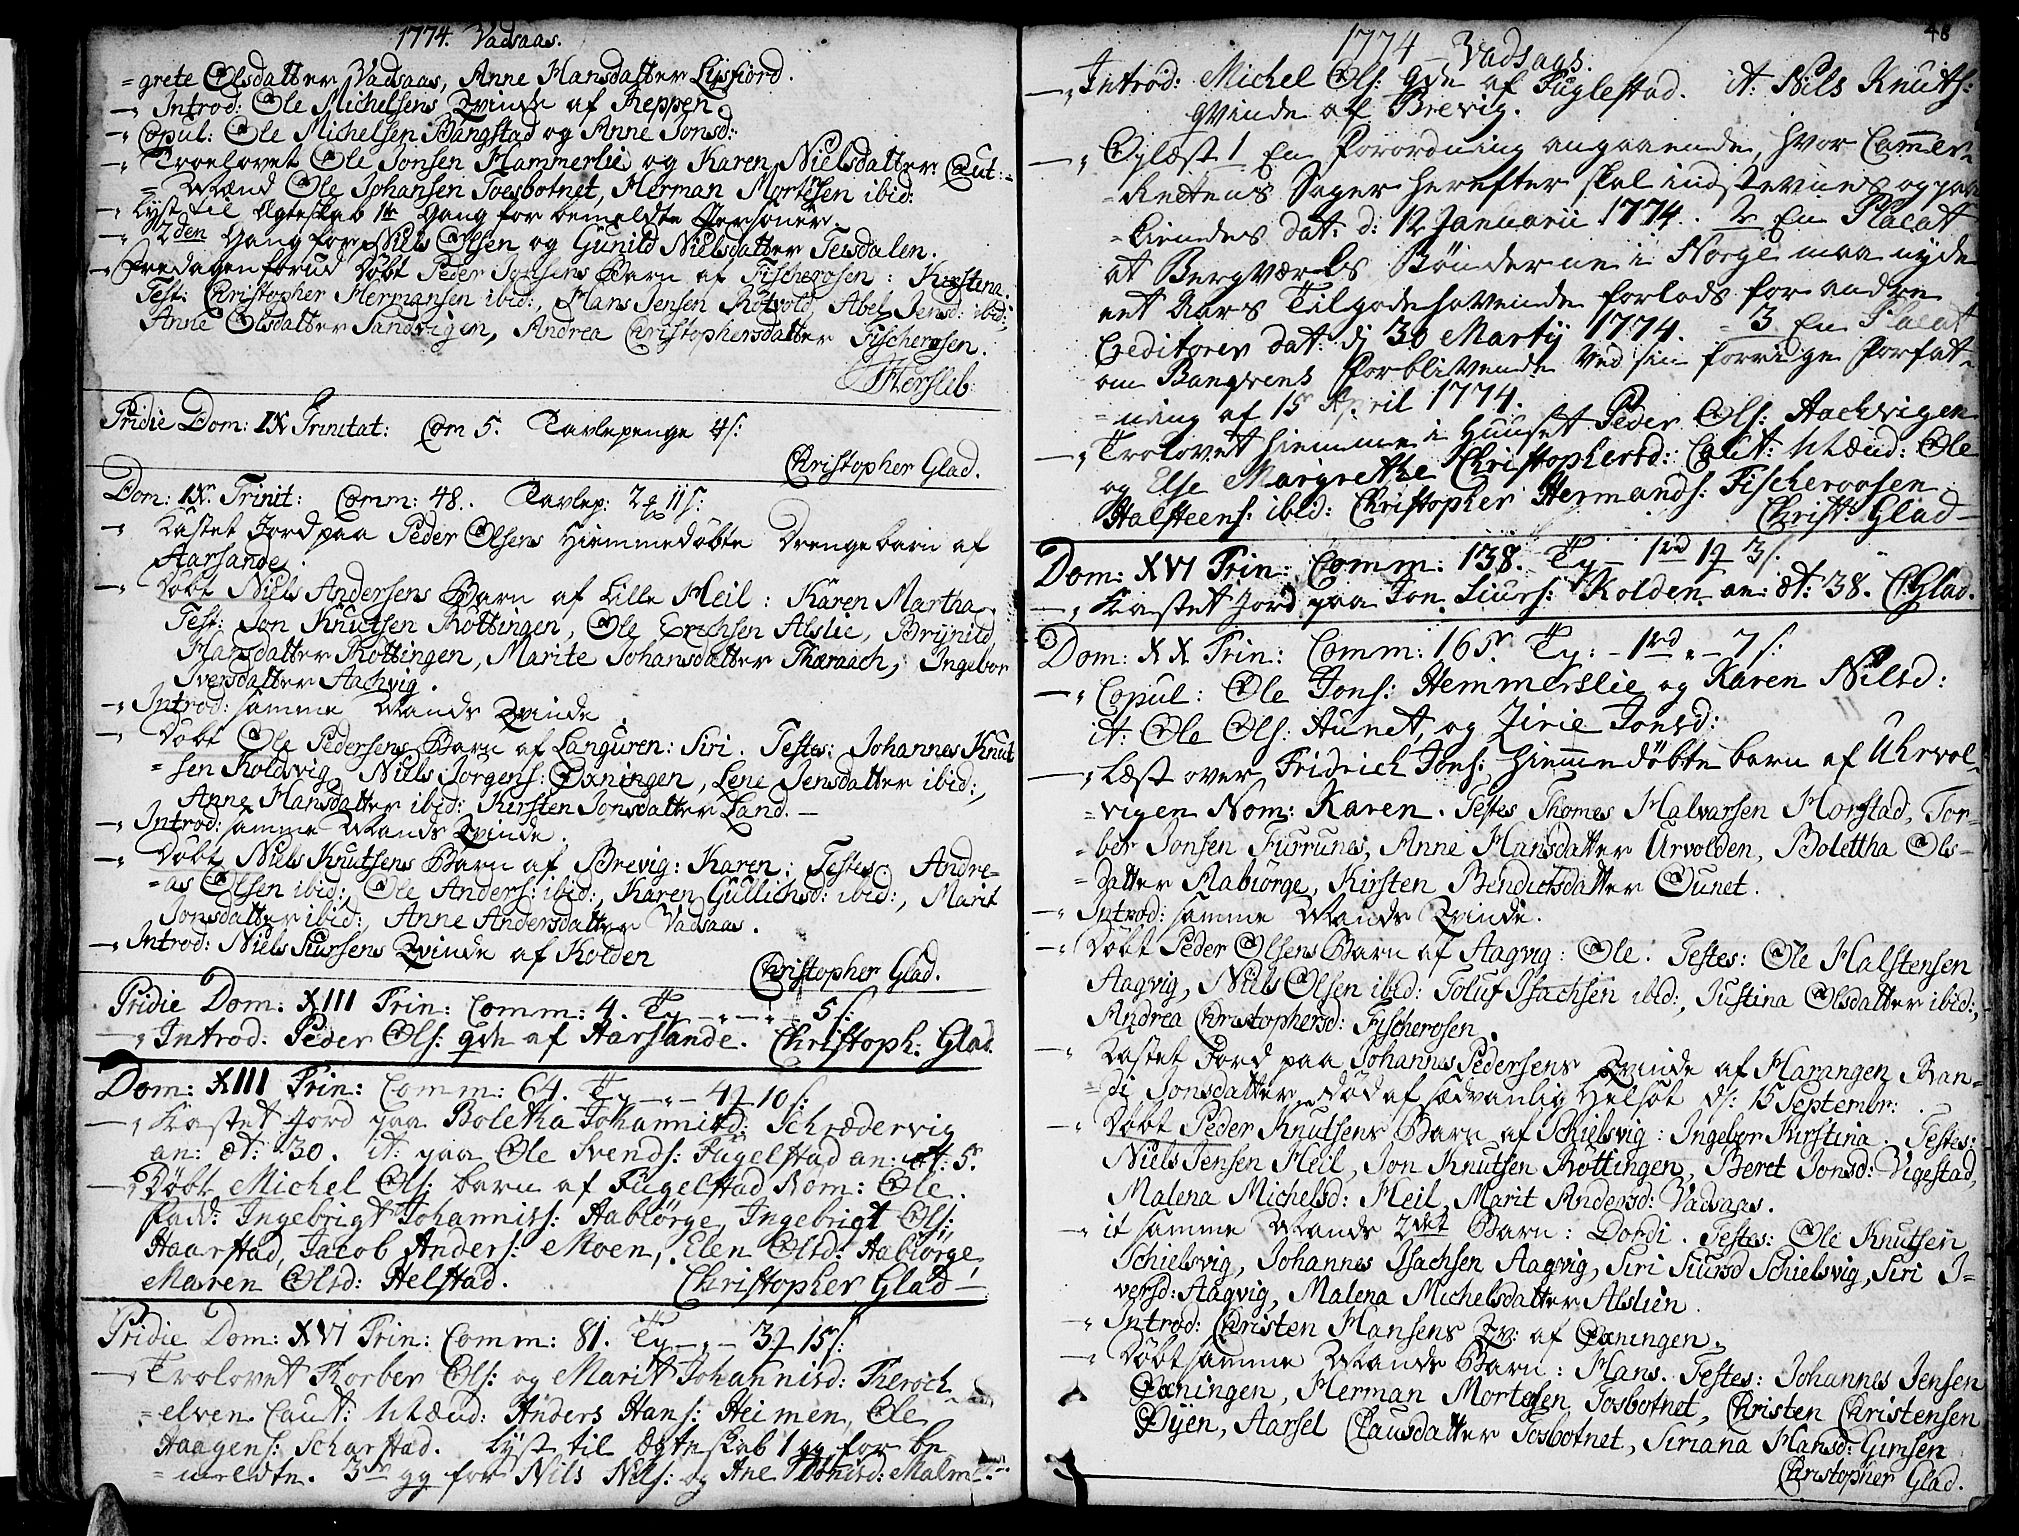 1774. Vadsaas.
=grete Olsdatter Vadsaas, Anne Hansdatter Lysfiord.
—, Introd: Ole Michelsens Qvinde af Reppen
—, Copul: Ole Michelsen Bangstad og Anne Jonsd:
—, Troelovet Ole Jonsen Hammerlie og Karen Nielsdatter Caut:=
= Mænd Ole Johansen Tosbotnet, Herman Mortesen ibid:
—, Lyst til Ægteskab 1te Gang for bemeldte Personer.
—, 2den Gang for Niels Olsen og Gunild Nielsdatter Teisdalen.
—, Fredagen forud Døbt Peder Jonsens Barn af Fischerosen: Kirstina.
Test: Christopher Hermansen ibid:, Hans Jensen Rotvold, Abel Jensd: ibid:,
Anne Olsdatter Sandvigen, Andrea Christophersdatter Fischerosen.
Hersleb
Pridie Dom: IX Trinitat: Com 5. Tavlepenge 4 s:
Christopher Glad.
Dom: IX Trinit: Comm: 48. Tavlep: 2 11 s:
—, Kastet Jord paa Peder Olsens Hiemmedøbte Drengebarn af
Aarsande.
—, Døbt Niels Andersens Barn af Lille Heil: Karen Martha
Test: Jon Knutsen Røttingen, Ole Erichsen Alslie, Brynild
Hansdatter Røttingen, Marite Johansdatter Theraach, Ingebor
Iversdatter Aachvig.
—, Introd: samme Mands Qvinde.
—, Døbt Ole Pedersens Barn af Languren: Siri. Testes: Johannes Knut
=sen Koldsvig, Niels Jørgens: Oxningen, Lene Jensdatter ibid:,
Anne Hansdatter ibid:, Kirsten Jonsdatter Land. —
—, Introd: samme Mands Qvinde.
—, Døbt Niels Knutsens Barn af Brevig: Karen: Testes Andre=
=as Olsen ibid:, Ole Anders: ibid:, Karen Gullichsd: ibid:, Marit
Jonsdatter ibid:, Anne Andersdatter Vadsaas.
—, Introd: Niels Siursens Qvinde af Kolden
Christopher Glad.
Pridie Dom: XIII Trin: Comm: 4. Ty — , — , — 5 s:
—, Introd: Peder Ols: qde af Aarsande. Christoph: Glad.
Dom: XIII Trin: Comm: 64. Ty — , — 4 10 s:
—, Kastet Jord paa Boletha Johannisd: Schrædervig
an: æt: 30. it: paa Ole Svends: Fugelstad an: æt: 5.
—, Døbt Michel Ols: barn af Fugelstad Nom: Ole.
Fadd: Ingebrigt Johannis: Aabiørge, Ingebrigt Ols:
Haarstad, Jacob Anders: Moen, Elen Olsd: Aabiørge,
Maren Olsd: Helstad. Christopher Glad —
Pridie Dom: XVI Trin: Comm: 81. Ty — , — 3 15 s:
—, Trolovet Torber Ols: og Marit Johannisd: Theroch=
=elven. Caut: Mænd: Anders Hans: Heimen, Ole
Haagens: Scharstad. Lyst til Ægteskab 1 gg for be
=meldte. 3de gg for Nils Nils: og Ane Malme
48
1774 — Vadsaas.
—, Introd: Michel Ols: qde af Fuglestad. it: Nils Knuts:
qvinde af Brevig.
—, Oplæst 1 En Forordning angaaende, hvor Camer=
=Rettens Sager herefter skal indstevnes og paa
=kiendes dat: d: 12 Januarii 1774. 2 En Placat
at Bergværks Bønderne i Norge maa nyde
eet Aars Tilgodehavende forlods for andre
Creditorer dat: d: 30 Martij 1774. = 3 En Placat
om Banqvens Forblivende ved sin forrige Forfat=
=ning af 15 April 1774.
—, Trolovet hiemme i Huuset Peder Ols: Aachvigen
og Else Margrethe Christophersd: Caut: Mænd: Ole
Halsteens: ibid: Christopher Hermands: Fischeroosen.
Christ: Glad —
Dom: XVI Trin: Comm: 138. Ty — 1rd 1 3 s:
—, Kastet Jord paa Jon Siurs: Kolden an: æt: 38. C. Glad.
Dom: XX Trin: Comm: 165. Ty: — 1rd „ — 7 s:
—, Copul: Ole Jons: Hemmerslie og Karen Nilsd:
it: Ole Ols: Aunet, og Zirie Jonsd:
—, Læst over Fridrich Jons: hiemmedøbte barn af Uhrvol=
=vigen Nom: Karen. Testes Thomes Halvarsen Horstad, Tor=
=ber Jonsen Furrunes, Anne Hansdatter Urvolden, Bolettha Ols=
=datter Aabiørge, Kirsten Bendictsdatter Ounet.
—, Introd: samme Mands Qvinde.
—, Døbt Peder Olsens Barn af Aagvig: Ole. Testes: Ole Halstensen
Aagvig, Niels Olsen ibid: Toluf Isachsen ibid:, Justina Olsdatter ibid:,
Andrea Christophersd: Fischerosen.
—, Kastet Jord paa Johannes Pedersens Qvinde af Harangen Ran=
=di Jonsdatter død af sædvanlig Helsot d: 15 Septembr:
—, Døbt Peder Knutsens Barn af Schielsvig: Ingebor Kirstina. Testes:
Niels Jensen Heil, Jon Knutsen Røttingen, Beret Jonsd: Vigestad,
Malena Michelsd: Heil, Marit Andersd: Vadsaas.
—, it samme Mands 2det Barn: Dordi. Testes: Ole Knutsen
Schielsvig, Johannes Isachsen Aagvig, Siri Siursd Schielsvig, Siri I=
versd: Aagvig, Malena Michelsdatter Alslien.
—, Introd: Christen Hansens Qv: af Oxningen.
—, Døbt samme Mands Barn: Hans. Testes: Johannes Jensen
Oxningen, Herman Mortesen Tosbotnet, Christen Christensen
Øyen, Aarsel Clausdatter Tosbotnet, Siriana Hansd: Gimsen
Christopher Glad.